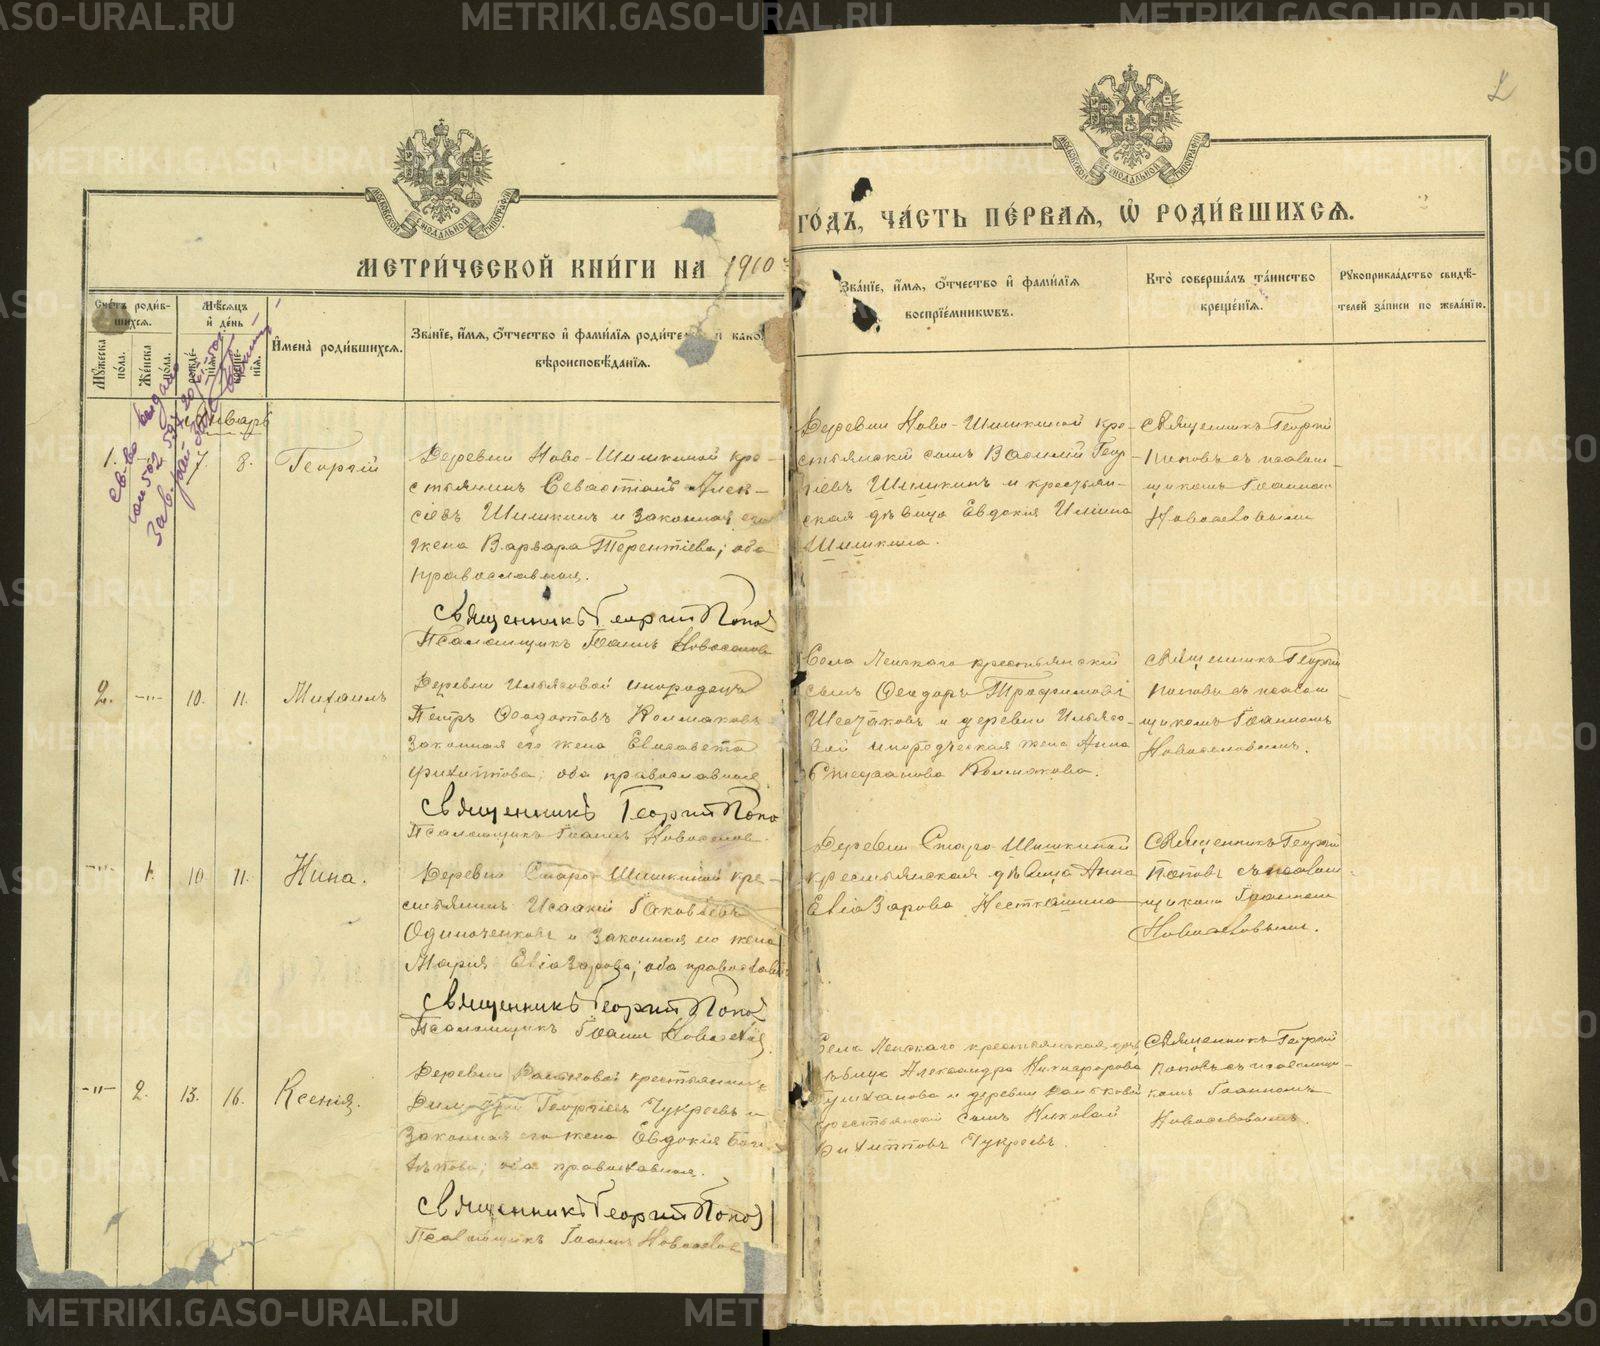 МЕТРИ́ЧЕСКОЙ КНИ́ГИ НА 1910
ГО́ДЪ, ЧА́СТЬ ПЕ́РВАЯ, Ѽ РОДИ́ВШИХСЯ.
МОСКОВСКОЙ СѴНОДАЛЬНОЙ ТИПОГРАФІИ
МОСКОВСКОЙ СѴНОДАЛЬНОЙ ТИПОГРАФІИ
Сче́тъ роди́в-
шихся.
Мѹ́жеска по́ла.
Же́нска по́ла.
Мѣ́сяцъ
и҆ де́нь
И҆мена̀ роди́вшихся.
Зва́нїе, и҆́мя, о҆́тчество и҆ фами́лїя
вѣроисповѣ́данїя.
Зва́нїе, и҆́мя, о҆́тчество и҆ фами́лїя
воспрїе́мникѡвъ.
Кто̀ соверша́лъ та́инство
креще́нїя.
Рѹкоприкла́дство свидѣ́-
телей за́писи по жела́нїю.
Январь
1. 8. Георгій
Деревни Ново-Шишкиной кре-
стьянинъ Севастіанъ Алек-
сѣевъ Шишкинъ и законная его
жена Варвара Терентіева; оба
православные.
Священникъ Георгій Попо
Псаломщикъ Іоаннъ Новоселовъ
Деревни Ново-Шишкиной кре-
стьянскій сынъ Василій Геор-
гіевъ Шишкинъ и крестьян-
ская дѣвица Евдокія Ильина
Шишкина.
Священникъ Георгій
Поповъ съ псалом-
щикомъ Іоанном
Новоселовымъ
2. -"- 10. 11. Михаилъ
Деревни Ильясовой инородецъ
Петръ Ѳедотовъ Колмаковъ
законная его жена Елисавета
Филиппова; оба православные
Священникъ Георгій Попо
Псаломщикъ Іоаннъ Новоселовъ.
Села Ленскаго крестьянскій
сынъ Ѳеодоръ Трофимовъ
Шестаковъ и деревни Ильясо-
вой инородческая жена Анна
Стефанова Колмакова.
Священникъ Георгій
Поповъ съ псалом-
щикомъ Іоанномъ
Новоселовымъ.
-"- 1. 10. 11. Нина.
Деревни Старо-Шишкиной кре-
стьянинъ Исаакій Іаковлевъ
Одиноченковъ и законная его жена
Марія Еліазарова; оба православ
Священникъ Георгій Попо
Псаломщикъ Іоаннъ Новоселов
Деревни Старо-Шишкиной
крестьянская дѣвица Анна
Еліазарова
Священникъ Георгій
Поповъ съ псалом-
щикомъ Іоанном
Новоселовымъ.
-"- 2. 13. 16. Ксенія.
Деревни крестьянинъ
Георгіевъ Чукреевъ и
законная его жена Евдокія
оба православные.
Священникъ Георгій Попо
Псаломщикъ Іоаннъ Новоселов
Села Ленскаго крестьянская
Александра Никифорова
и деревни
крестьянскій сынъ Николай
Филипповъ Чукреевъ.
Священникъ Георгій
Поповъ съ псаломщи-
комъ Іоанномъ
Новоселовымъ.
METRIKI.GASO-URAL.RU